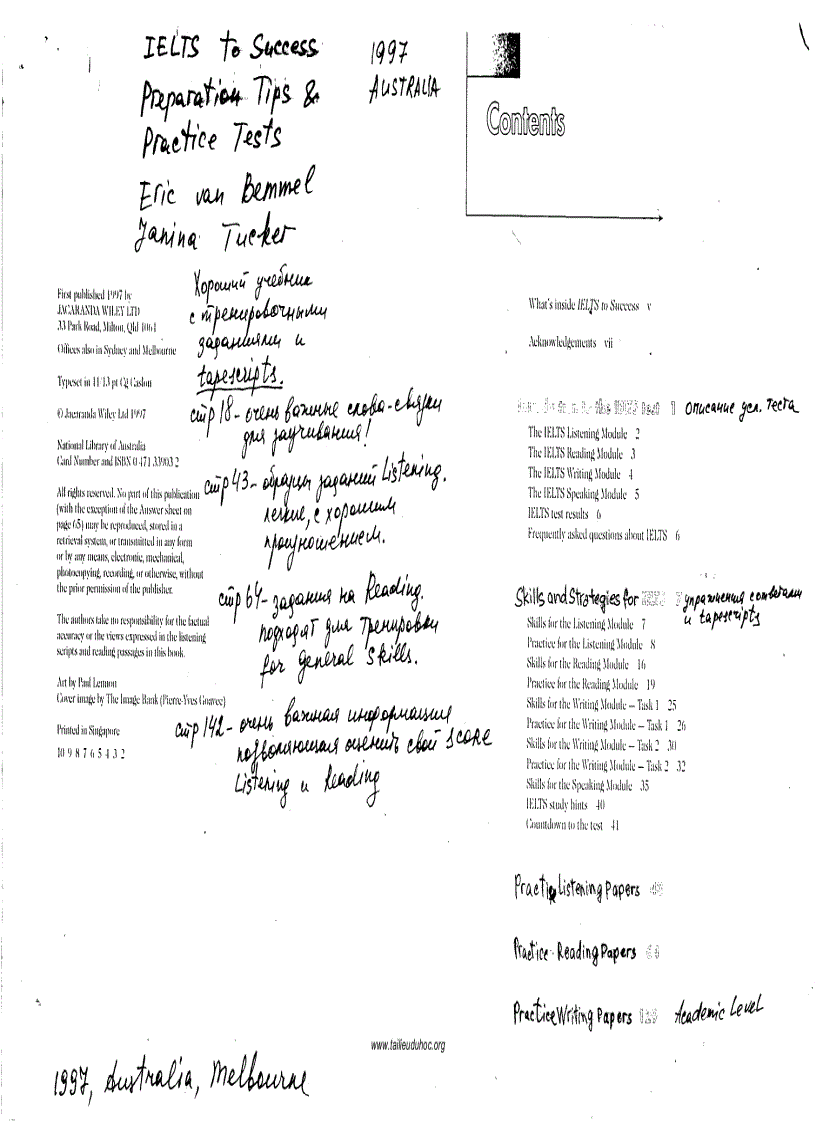 IELTS to Success
Preparation Tips &
Practice Tests
Eric van Bemmel
Janina Tucker
1997
AUSTRALIA
Contents
First published 1997 by
JACARANDA WILEY LTD
33 Park Road, Milton, Qld 4064
Offices also in Sydney and Melbourne
Typeset in 11/13 pt CG Caslon
© Jacaranda Wiley Ltd 1997
National Library of Australia
Card Number and ISBN 0 471 33903 2
All rights reserved. No part of this publication
(with the exception of the Answer sheet on
page 65) may be reproduced, stored in a
retrieval system, or transmitted in any form
or by any means, electronic, mechanical,
photocopying, recording, or otherwise, without
the prior permission of the publisher.
The authors take no responsibility for the factual
accuracy or the views expressed in the listening
scripts and reading passages in this book.
Art by Paul Lennon
Cover image by The Image Bank (Pierre-Yves Goavec)
Printed in Singapore
10 9 8 7 6 5 4 3 2
Хороший учебник
с тренировочными
заданиями и
tapescripts.
стр 18 - очень важные слова-связки
для заучивания!
стр 43 - образцы заданий Listening.
легкие, с хорошим
произношением.
стр 64 - задания на Reading.
подходят для тренировки
for general skills.
стр 142 - очень важная информация
позволяющая оценить свой score
Listening и Reading
What's inside IELTS to Success v
Acknowledgements vii
the IELTS test 1 описание усл. теста
The IELTS Listening Module 2
The IELTS Reading Module 3
The IELTS Writing Module 4
The IELTS Speaking Module 5
IELTS test results 6
Frequently asked questions about IELTS 6
Skills and Strategies for IELTS 7 упражнения с ответами
и tapescripts
Skills for the Listening Module 7
Practice for the Listening Module 8
Skills for the Reading Module 16
Practice for the Reading Module 19
Skills for the Writing Module – Task 1 25
Practice for the Writing Module – Task 1 26
Skills for the Writing Module – Task 2 30
Practice for the Writing Module – Task 2 32
Skills for the Speaking Module 35
IELTS study hints 40
Countdown to the test 41
Practice Listening Papers
Practice Reading Papers
Practice Writing Papers Academic Level
www.tailieuduhoc.org
1997, Australia, Melbourne